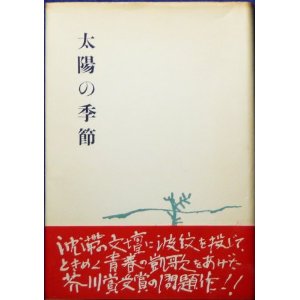 太陽の季節
沈滞の文壇に波紋を投じて
ときめく青春の凱歌をあげた
芥川賞受賞の問題作…!!